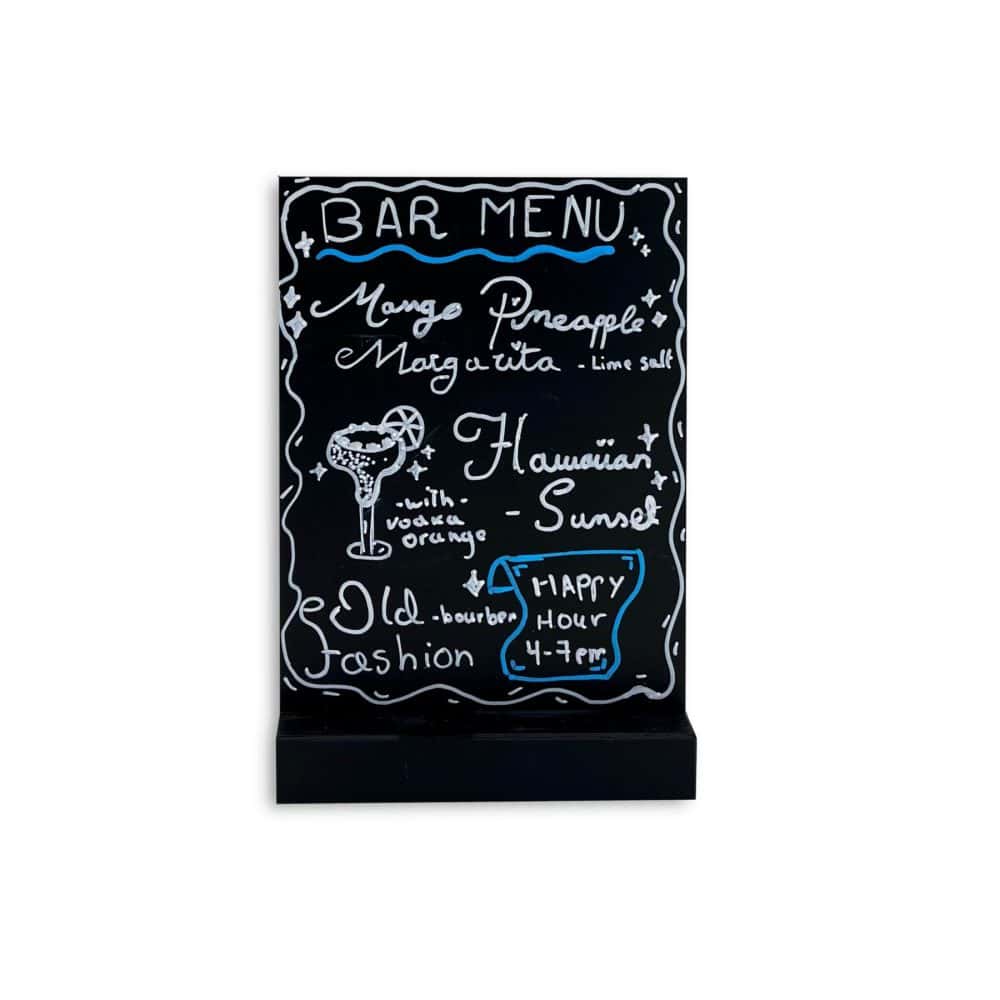 BAR MENU
Mango Pineapple
Margarita - Lime salt
Hawaiian
- Sunset
- with -
vodka
orange
Old - bourben
Fashion
HAPPY
Hour
4-7pm